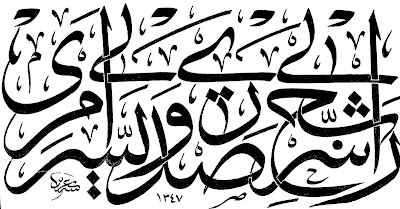 رب اشرح لي صدري ويسر لي أمري
١٣٤٧